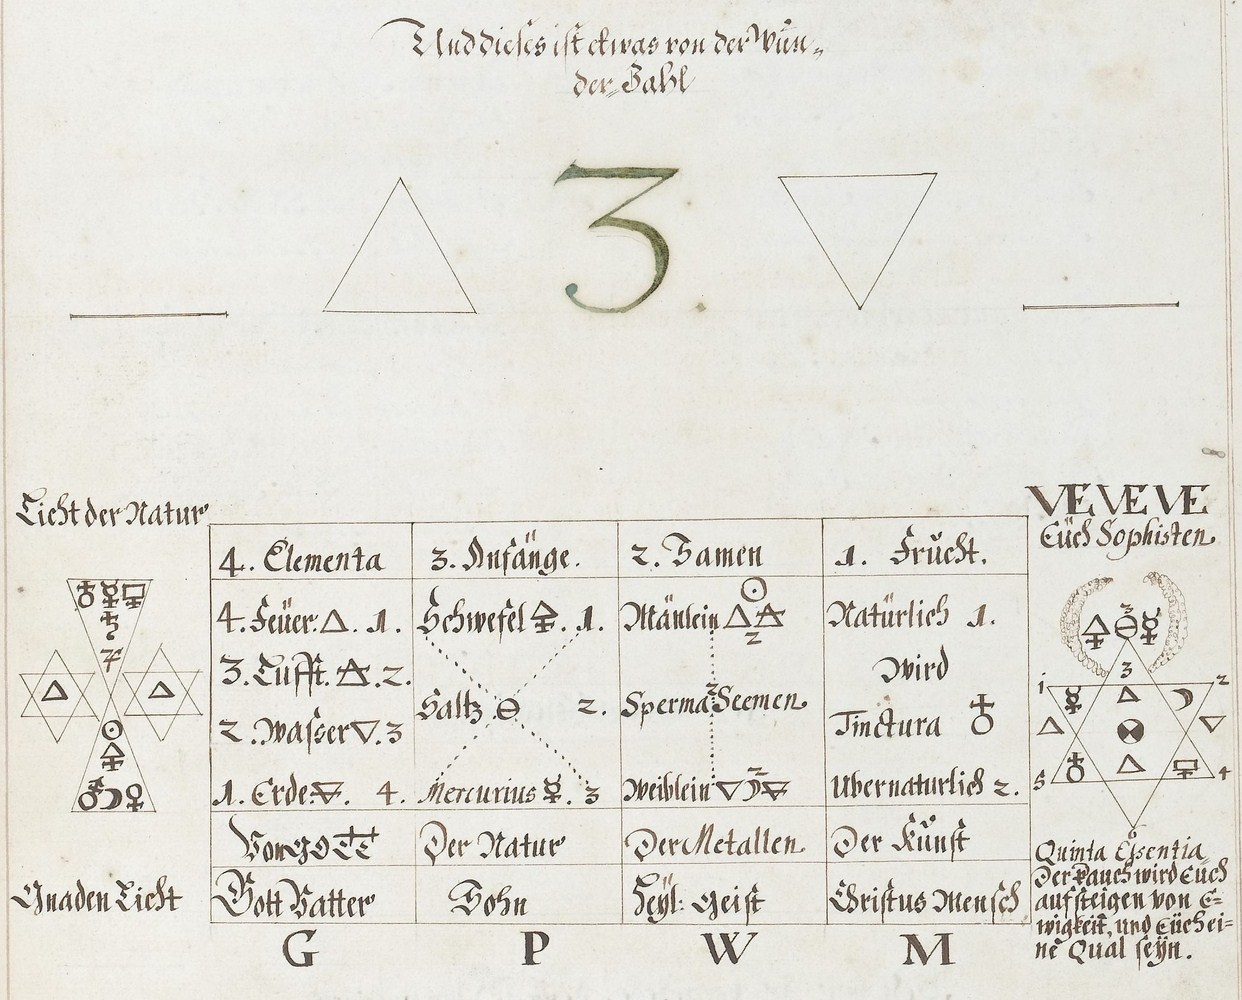 Und dieses ist etwas von der Wun=
der=Zahl
3.
Licht der Natur
VE VE VE
Eüch Sophisten.
4. Elementa
3. Anfänge.
2. Samen
1. Frücht.
4. Feüer. 1.
Schwefel 1.
Mänlein
2
Natürlich 1.
3. Lufft. 2.
wird
Saltz 2.
Sperma 2 Seemen.
2. Wasser 3
Tinctura
1. Erde. 4.
Mercurius 3
Weiblein
2
Ubernaturlich 2.
3
3
1 2
5 4
Von GOTT
Der Natur
Der Metallen.
Der Künst
Gnaden Licht
Gott Vatter
Sohn
Heyl: Geist
Christus Mensch
G P W M
Quinta Essentia
Der Rauch wird Eüch
aufsteigen von E=
wigkeit, und Eüch ei=
ne Qual seyn.